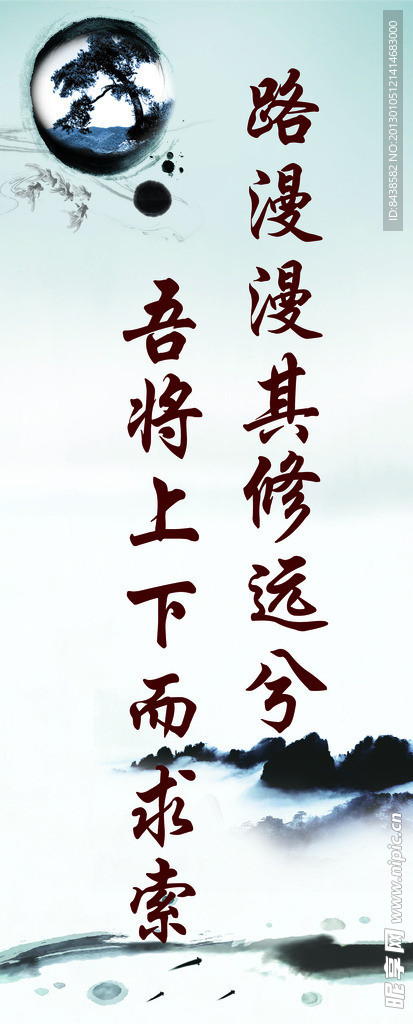 路漫漫其修远兮
吾将上下而求索
ID:8438582 NO:20130105121414683000
昵享网 www.nipic.cn